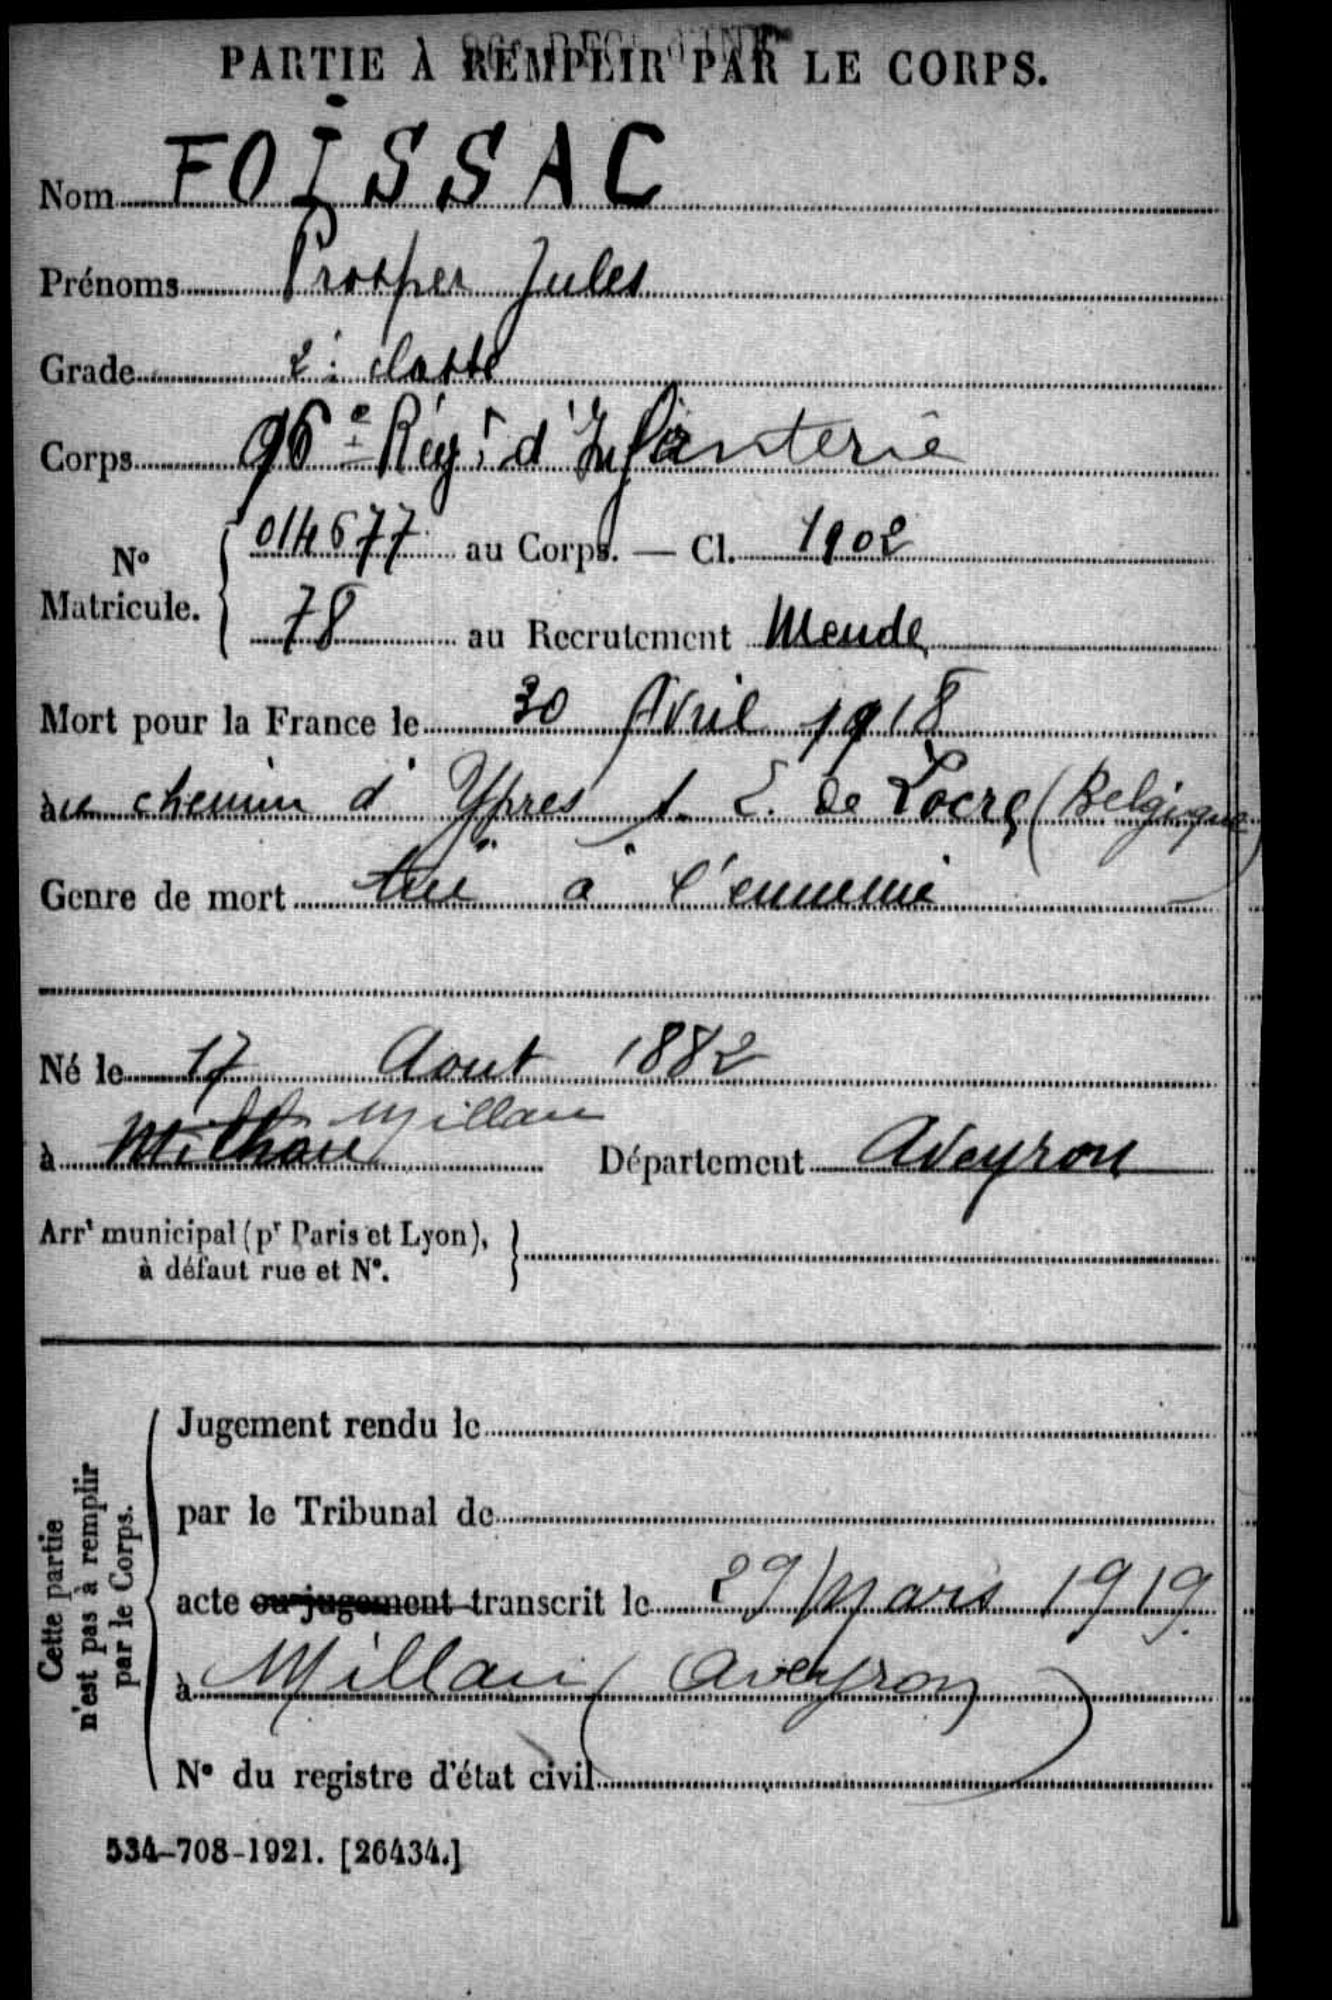 PARTIE À REMPLIR PAR LE CORPS.
Nom FOISSAC
Prénoms Prosper Jules
Grade 2e classe
Corps 96e Régt d'Infanterie
No Matricule. 014677 au Corps. — Cl. 1902
78 au Recrutement Mende
Mort pour la France le 30 Avril 1918
au chemin d'Ypres S. E. de Locre (Belgique)
Genre de mort tué à l'ennemi
Né le 17 Aout 1882
à Milhau Millau Département Aveyron
Arrt municipal (pr Paris et Lyon),
à défaut rue et No.
Cette partie
n'est pas à remplir
par le Corps.
Jugement rendu le
par le Tribunal de
acte ou jugement transcrit le 29 Mars 1919.
à Millau (Aveyron)
No du registre d'état civil
534-708-1921. [26434.]